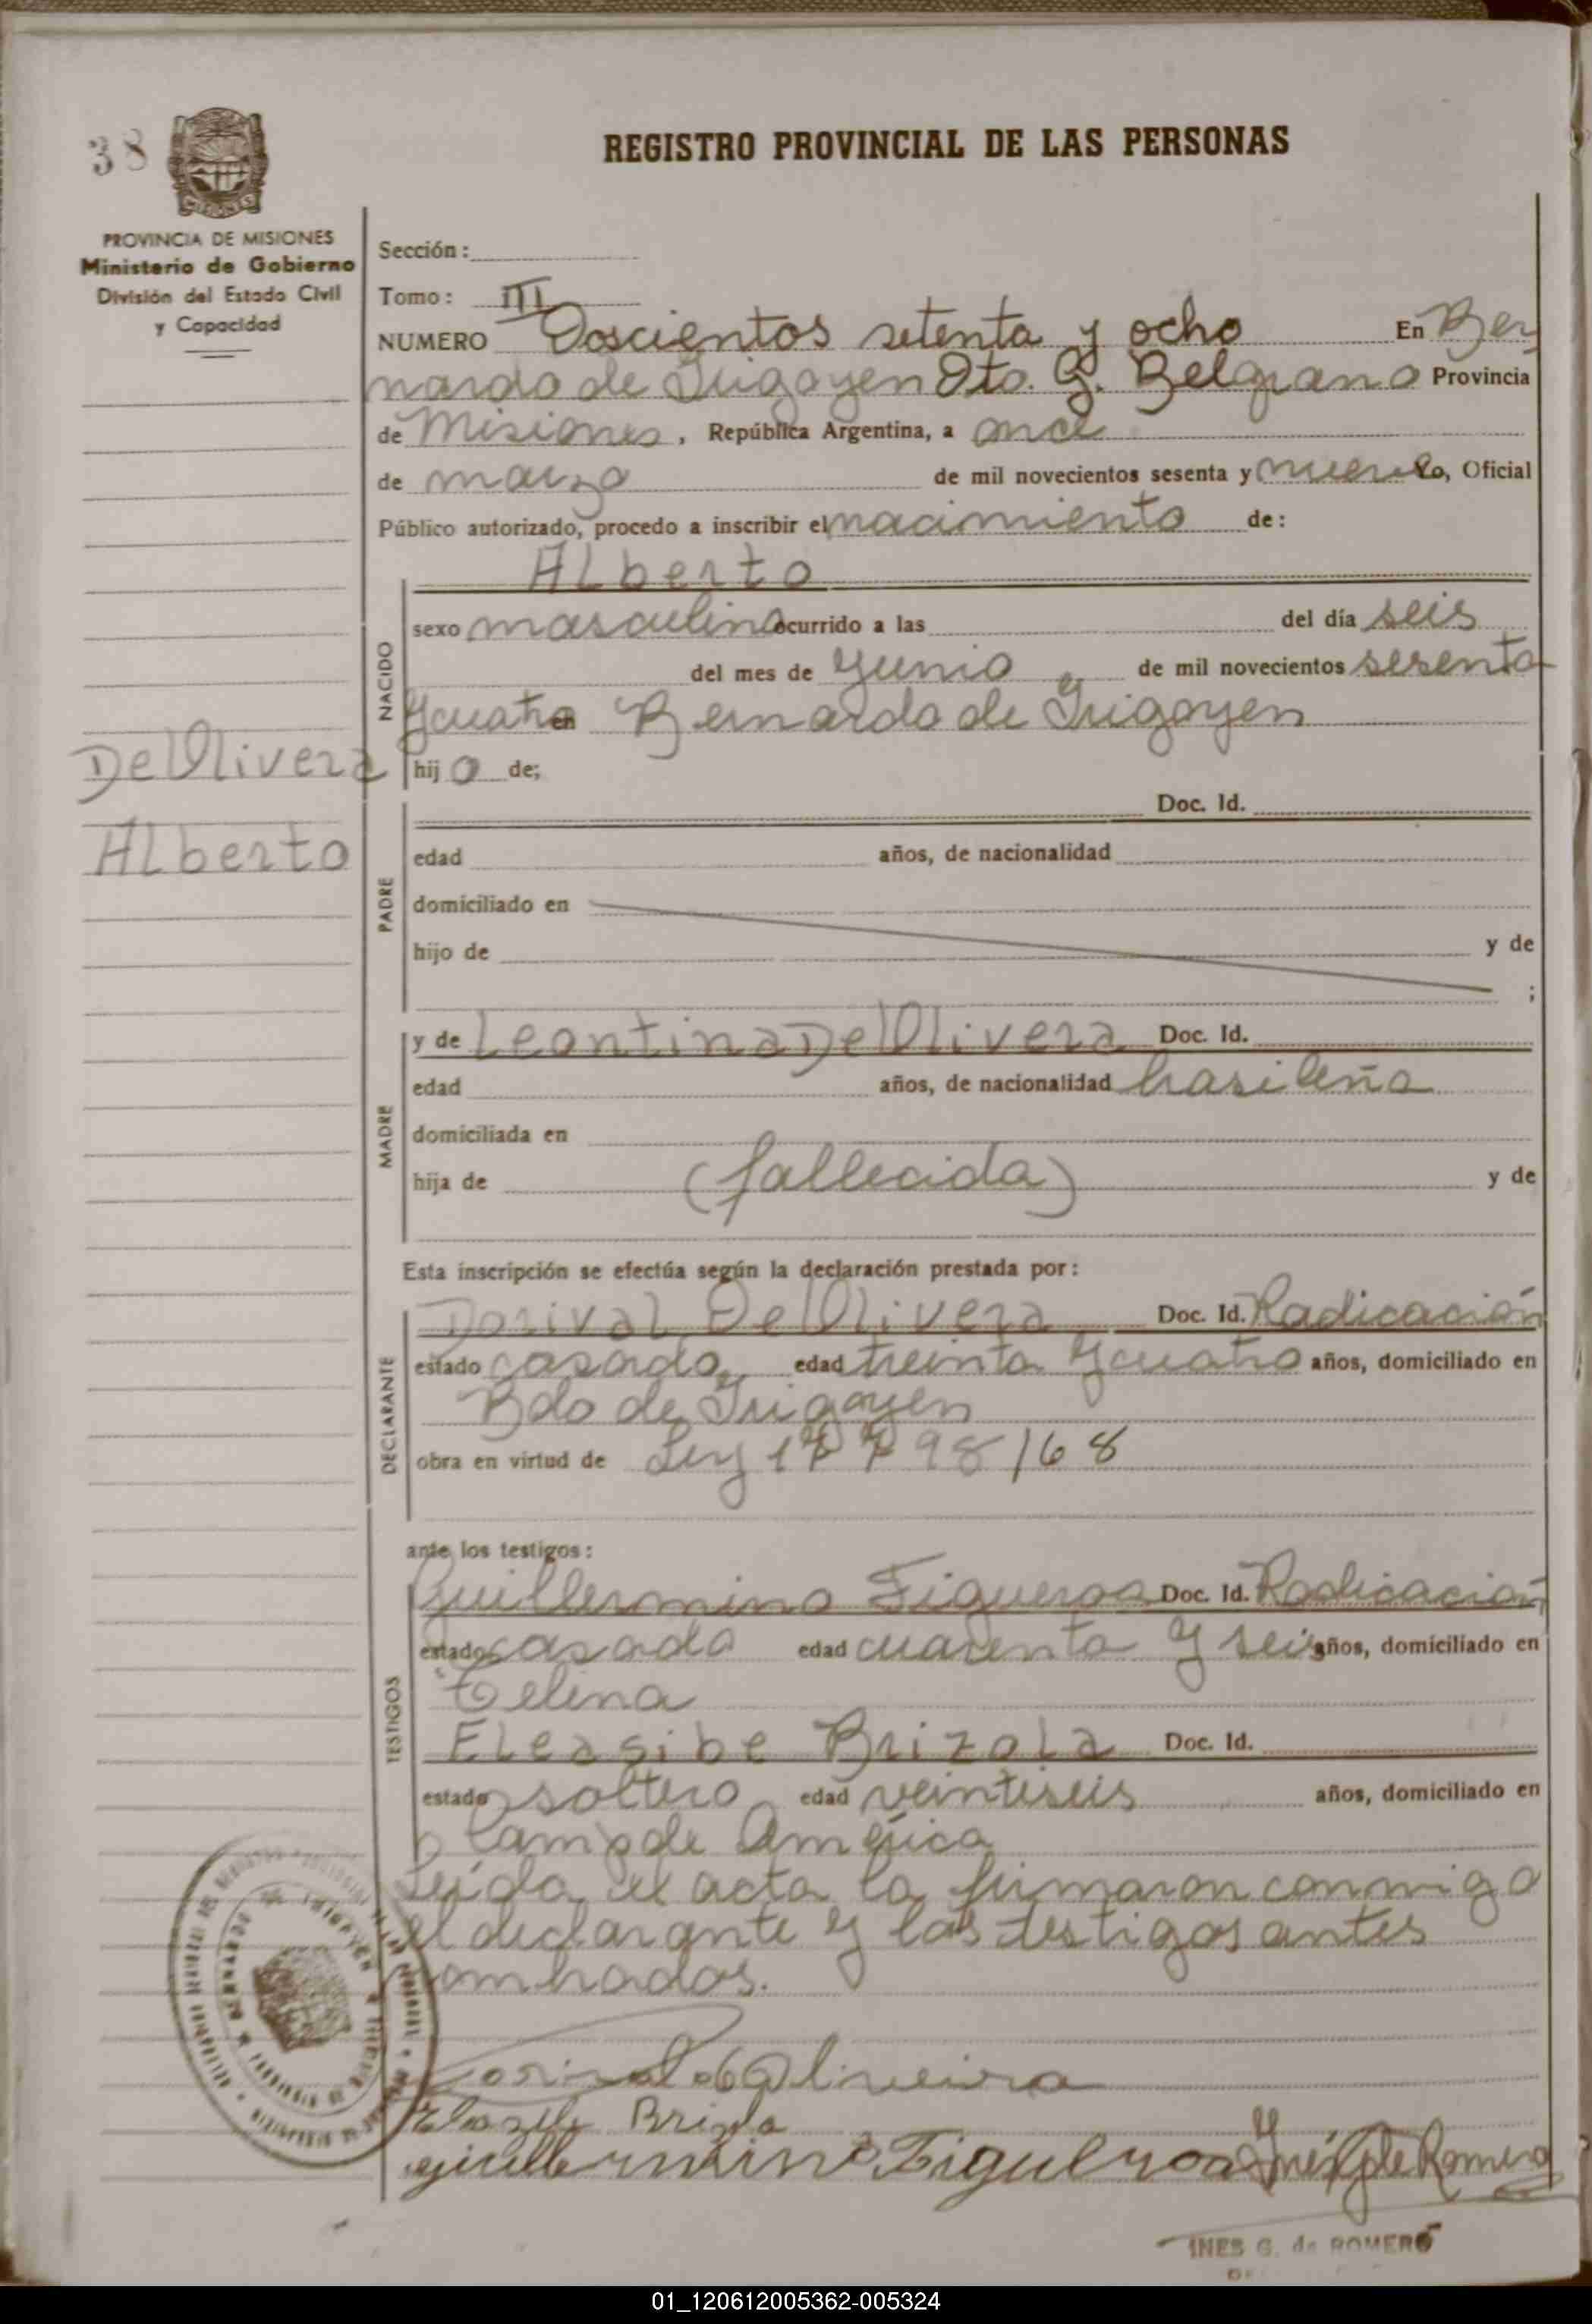 38
MISIONES
PROVINCIA DE MISIONES
Ministerio de Gobierno
División del Estado Civil
y Capacidad
REGISTRO PROVINCIAL DE LAS PERSONAS
Sección:
Tomo: III
NUMERO Doscientos setenta y ocho En Ber
nardo de Irigoyen Dto. G. Belgrano Provincia
de Misiones, República Argentina, a once
de marzo de mil novecientos sesenta y nueve Yo, Oficial
Público autorizado, procedo a inscribir el nacimiento de:
Alberto
NACIDO
sexo masculino ocurrido a las del día seis
del mes de Junio de mil novecientos sesenta
y cuatro en Bernardo de Irigoyen
hijo de;
De Olivera
Alberto
PADRE
Doc. Id.
edad años, de nacionalidad
domiciliado en
hijo de y de
;
MADRE
y de Leontina De Olivera Doc. Id.
edad años, de nacionalidad brasileña
domiciliada en
hija de (fallecida) y de
Esta inscripción se efectúa según la declaración prestada por:
DECLARANTE
Dorival De Olivera Doc. Id. Radicación
estado casado edad treinta y cuatro años, domiciliado en
Bdo de Irigoyen
obra en virtud de Ley 17798/68
ante los testigos:
TESTIGOS
Guillermino Figueroa Doc. Id. Radicación
estado casado edad cuarenta y seis años, domiciliado en
Celina
Eleasibe Brizola Doc. Id.
estado soltero edad veintiseis años, domiciliado en
Campo de América
Leída el acta la firmaron conmigo
el declarante y los testigos antes
nombrados.
Dorival de Oliveira
Brizola
guillermino Figueroa Inés G de Romero
INES G. de ROMERO
01_120612005362-005324